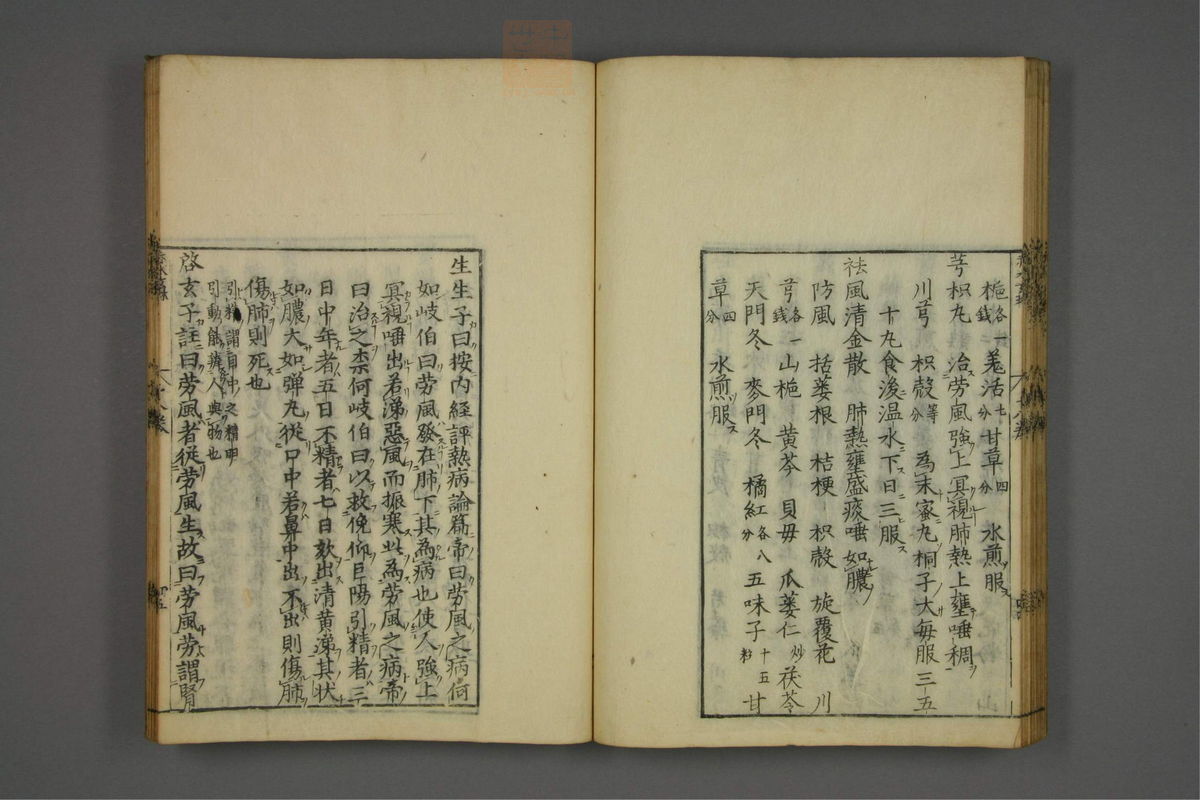 梔各二錢 羗活七分 甘草四分 水煎服
芎枳丸 治勞風強上冥視肺熱上壅唾稠
川芎 枳殻等分 為末蜜丸桐子大每服三五
十丸食後温水下日三服
祛風清金散 肺熱壅盛痰唾如膿
防風 括蔞根 桔梗 枳殻 旋覆花 川
芎各一錢 山梔 黄芩 貝毋 瓜蔞仁炒 茯苓
天門冬 麥門冬 橘紅各八分 五味子十五粒 甘
草四分 水煎服
生生子曰按内經評熱病論篇帝曰勞風之病何
如岐伯曰勞風發在肺下其為病也使人強上
冥視唾出若涕惡風而振寒此為勞風之病帝
曰治之柰何岐伯曰以救俛仰巨陽引精者三
日中年者五日不精者七日欬出清黄涕其状
如膿大如弾丸從口中若鼻中出不出則傷肺
傷肺則死也
引精謂自中之精甲
引動能辨人與物也
啓玄子註曰勞風者從勞風生故曰勞風勞謂腎